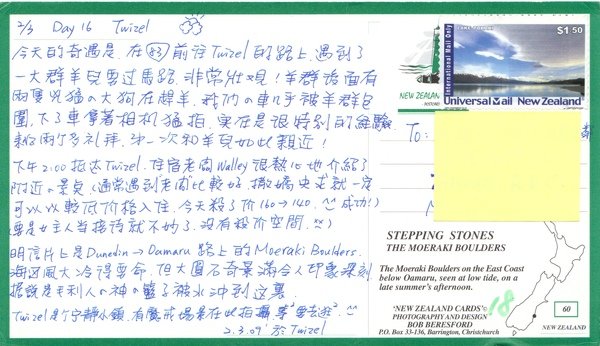 2/3 Day 16 Twizel
今天的奇遇是,在 83 前往Twizel的路上,遇到了
一大群羊兒要過馬路,非常壯觀!羊群後面有
兩隻兇猛的大狗在趕羊,我們的車子被羊群包
圍,下了車拿著相機猛拍,實在是很特別的經驗
來了兩個多禮拜,第一次和羊兒如此親近!
下午2:00 抵達Twizel,住宿老闆Walley很熱心地介紹了
附近の景點(通常遇到老闆比較好,撒嬌央求就一定
可以以較低价格入住,今天殺了价160→140. ^^ 成功!)
(要是女主人當接待就不妙了,沒有殺价空間. ^^)
明信片上是Dunedin→Oamaru路上的Moeraki Boulders.
海邊風大冷得要命,但大圓石奇景滿令人印象深刻
據說是毛利人の神の籃子被水沖到這裏.
Twizel是个寧靜小鎮,有魔戒場景在此拍攝
2.3.09 於Twizel
Lake Pukaki
International Mail Only
$1.50
Universal Mail New Zealand
NEW ZEALAND
To:
STEPPING STONES
THE MOERAKI BOULDERS
The Moeraki Boulders on the East Coast
below Oamaru, seen at low tide, on a
late summer's afternoon.
'NEW ZEALAND CARDS'©
PHOTOGRAPHY AND DESIGN
BOB BERESFORD
P.O. Box 33-136, Barrington, Christchurch
18
60
NEW ZEALAND